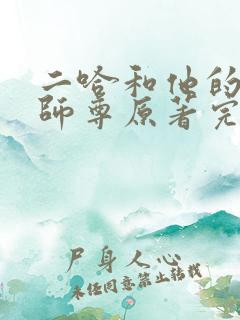 二哈和他的
師尊原著完
尸身人心
未经同意禁止转载